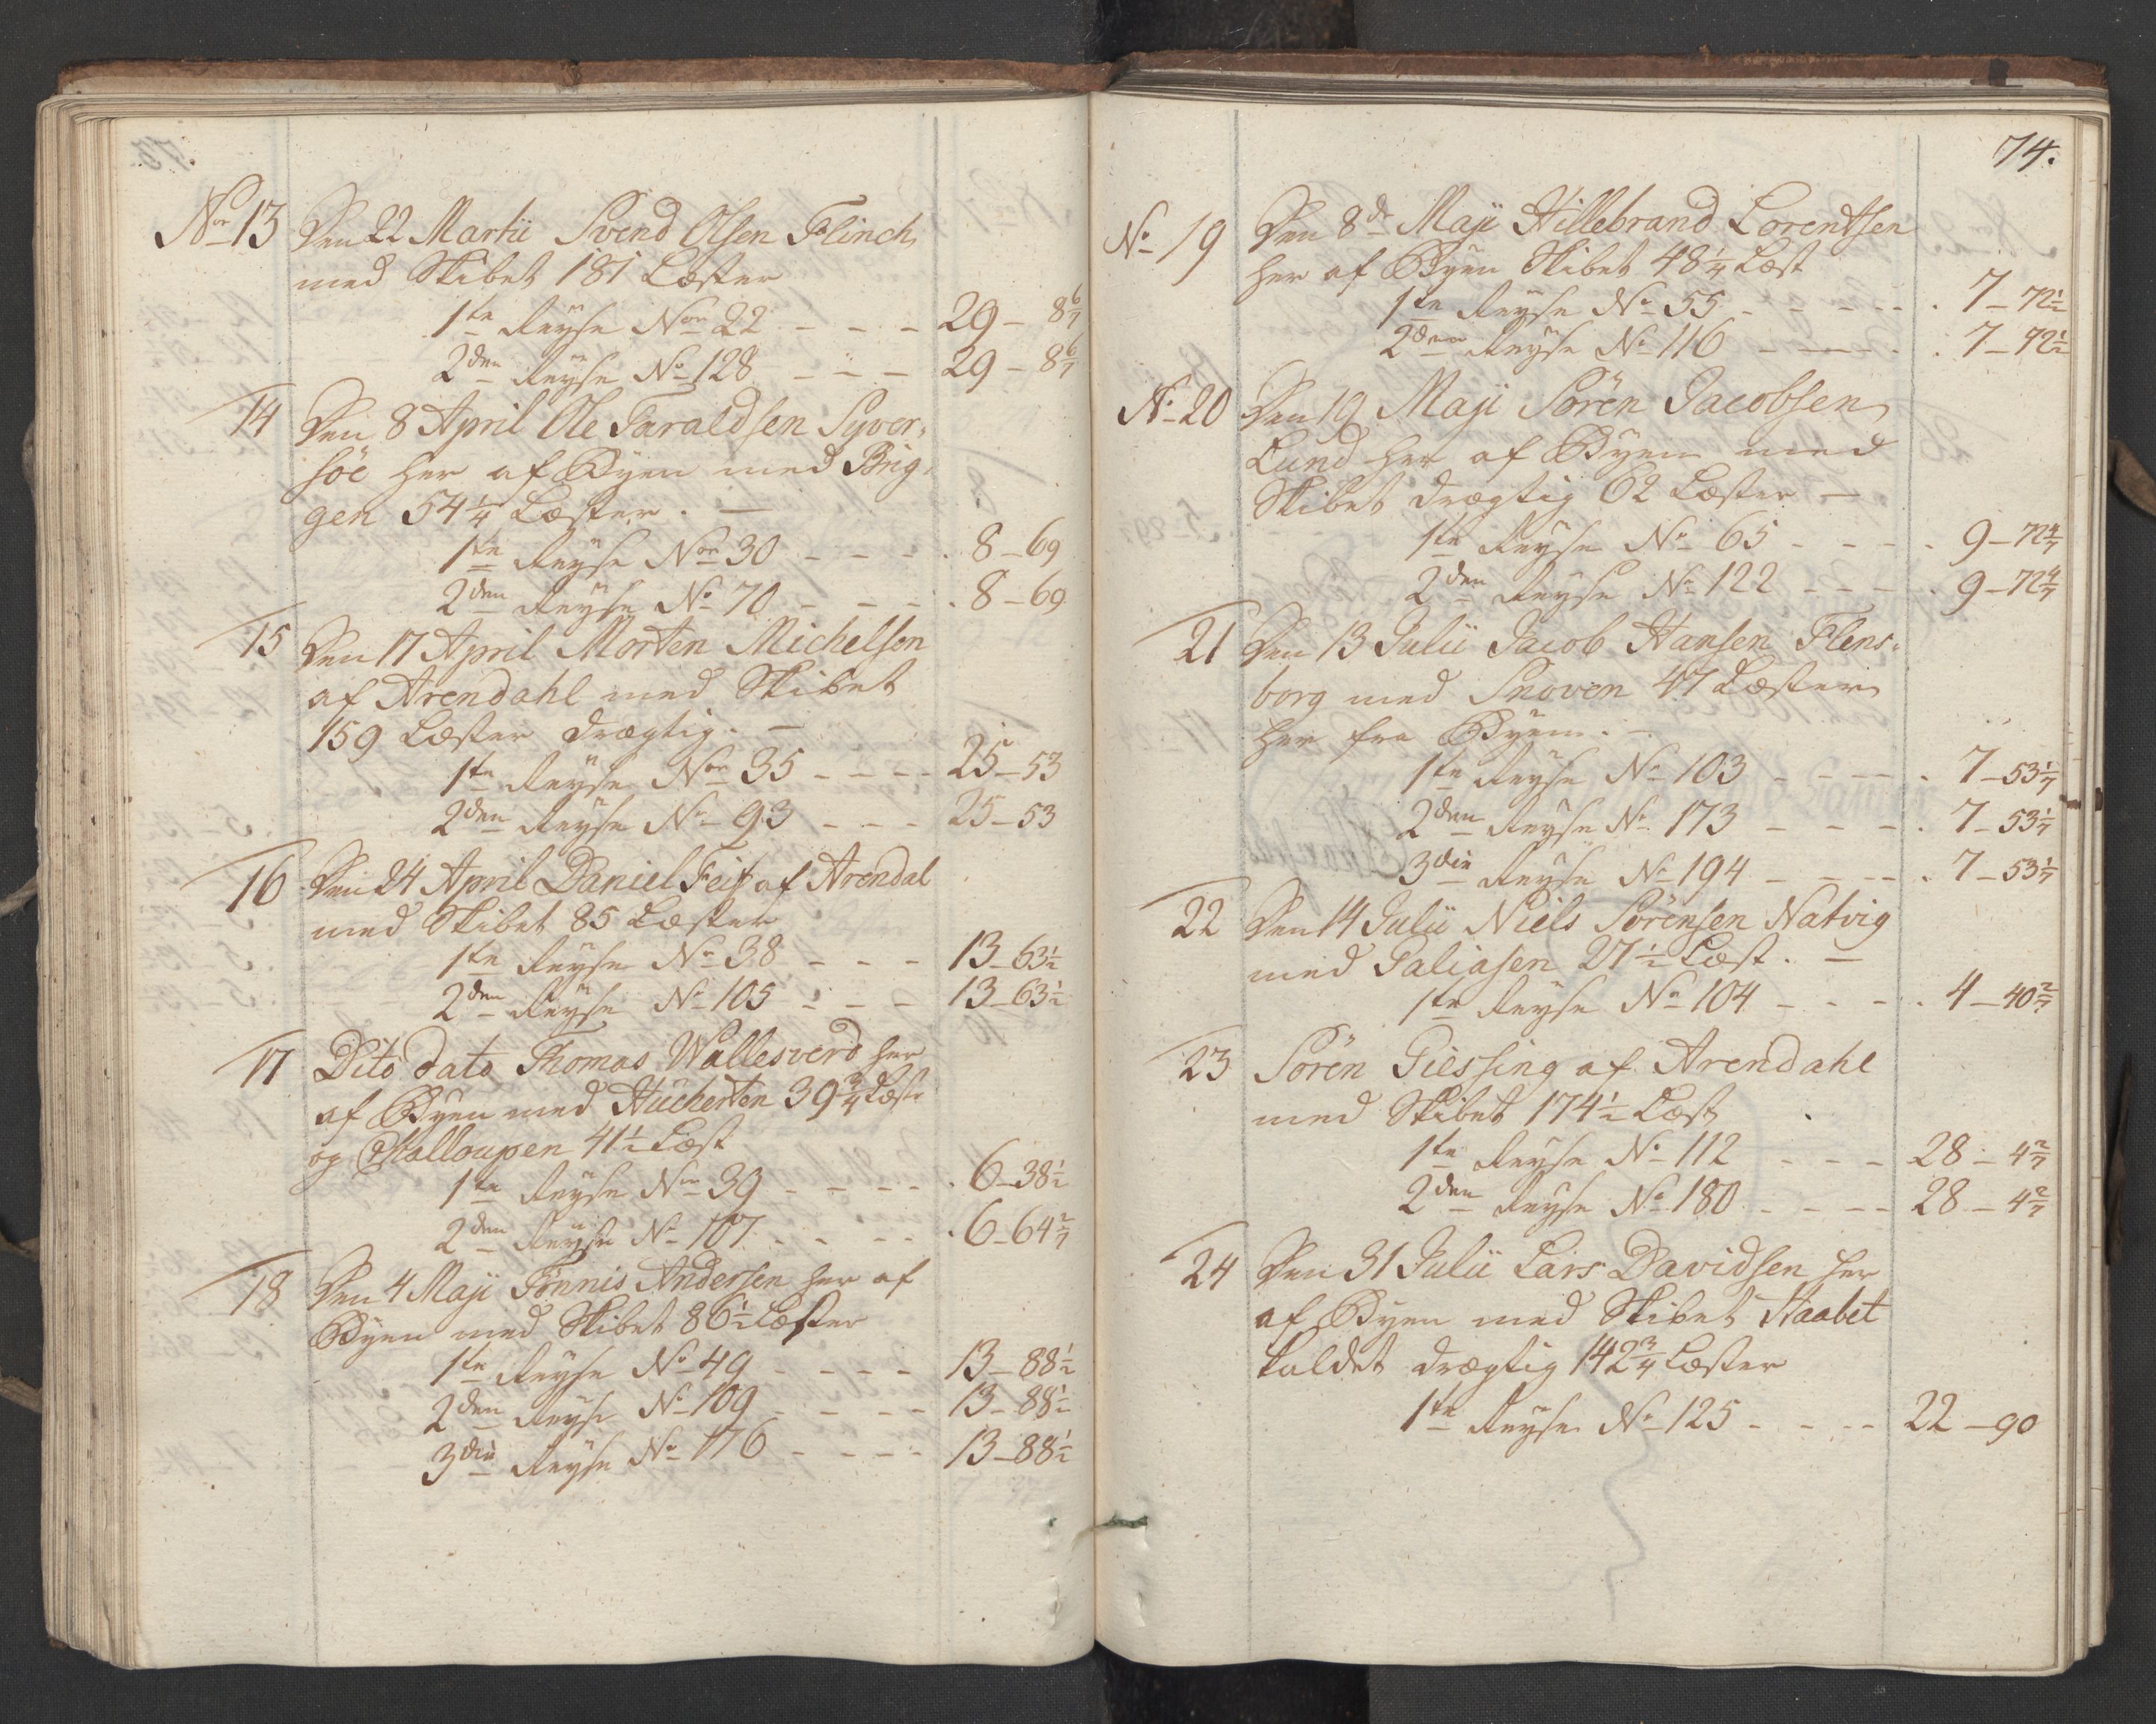 Nor 13 Den 22 Martii Svend Olsen Flinch
med Skibet 181 Læster
1te Reyse Nor 22 - - - 29 - 8 6/7
2den Reyse No 128 - - - 29 - 8 6/7
14 Den 8 April Ole Taraldsen Syver-
söe her af Byen med Brig-
gen 54 1/4 Læster. -
1te Reyse Nor 30 - - - . 8 - 69
2den Reyse No 70 - - - . 8 - 69
15 Den 17 April Morten Michelsen
af Arendahl med Skibet
159 Læster drægtig. -
1te Reyse Nor 35 - - - - 25 - 53
2den Reyse No 93 - - - 25 - 53
16 Den 24 April Daniel Feif af Arendal
med Skibet 85 Læster
1te Reyse No 38 - - - 13 - 63 1/2
2den Reyse No 105 - - - 13 - 63 1/2
17 Dito dato Thomas Wallesverd her
af Byen med Huckerten 39 3/4 Læst
og Challoupen 41 1/2 Læst
1te Reyse Nor 39 - - - - . 6 - 38 1/2
2den Reyse No 107 - - - - . 6 - 64 2/7
18 Den 4 Maji Tönnis Andersen her af
Byen med Skibet 86 1/2 Læster
1te Reyse No 49 - - - - 13 - 88 1/2
2den Reyse No 109 - - - - 13 - 88 1/2
3die Reyse No 176 - - - - 13 - 88 1/2
74.
No 19 Den 8de Maji Hillebrand Lorentsen
her af Byen Skibet 48 1/4 Læst
1te Reyse No 55 - - - - . 7 - 72 1/2
2den Reyse No 116 - - - - . 7 - 72 1/2
No 20 Den 19 Maji Sören Jacobsen
Lund her af Byen med
Skibet drægtig 62 Læster -
1te Reyse No 65 - - - . 9 - 72 4/7
2den Reyse No 122 - - - . 9 - 72 4/7
21 Den 13 Julii Jacob Hansen Flens-
borg med Snoven 47 Læster
her fra Byen. -
1te Reyse No 103 - - - - . 7 - 53 1/7
2den Reyse No 173 - - - . 7 - 53 1/7
3die Reyse No 194 - - - - . 7 - 53 1/7
22 Den 14 Julii Niels Sörensen Natvig
med Galiasen 27 1/2 Læst. -
1te Reyse No 104 - - - . 4 - 40 2/7
23 Sören Giessing af Arendahl
med Skibet 174 1/2 Læst
1te Reyse No 112 - - - 28 - 4 2/7
2den Reyse No 180 - - - - 28 - 4 2/7
24 Den 31 Julii Lars Davidsen her
af Byen med Skibet Haabet
kaldet drægtig 142 3/4 Læster
1te Reyse No 125 - - - - 22 - 90